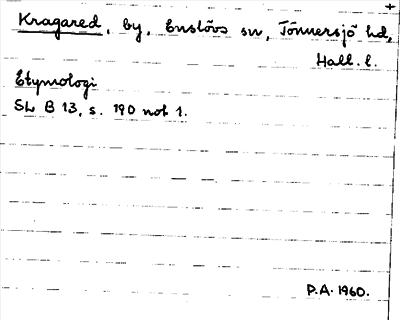 Kragared, by, Enslövs sn, Tönnersjö hd,
Hall. l.
Etymologi
SL B 13, s. 190 not 1.
P.A. 1960.